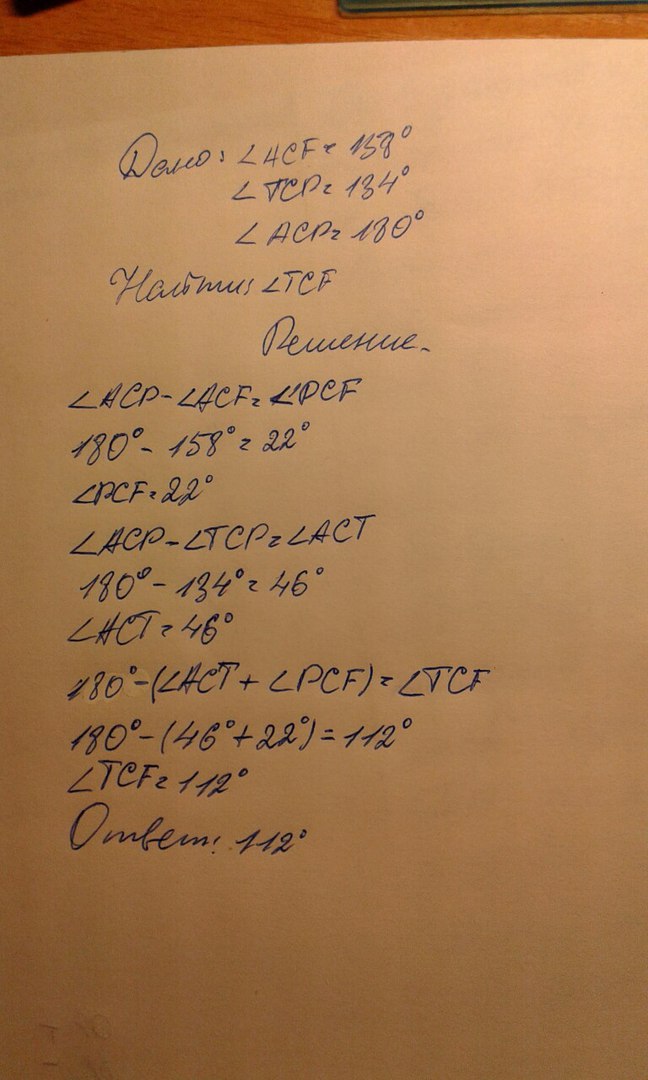 Дано: ∠ACF = 158°
∠TCP = 134°
∠ACP = 180°
Найти: ∠TCF
Решение.
∠ACP - ∠ACF = ∠PCF
180° - 158° = 22°
∠PCF = 22°
∠ACP - ∠TCP = ∠ACT
180° - 134° = 46°
∠ACT = 46°
180° - (∠ACT + ∠PCF) = ∠TCF
180° - (46° + 22°) = 112°
∠TCF = 112°
Ответ: 112°